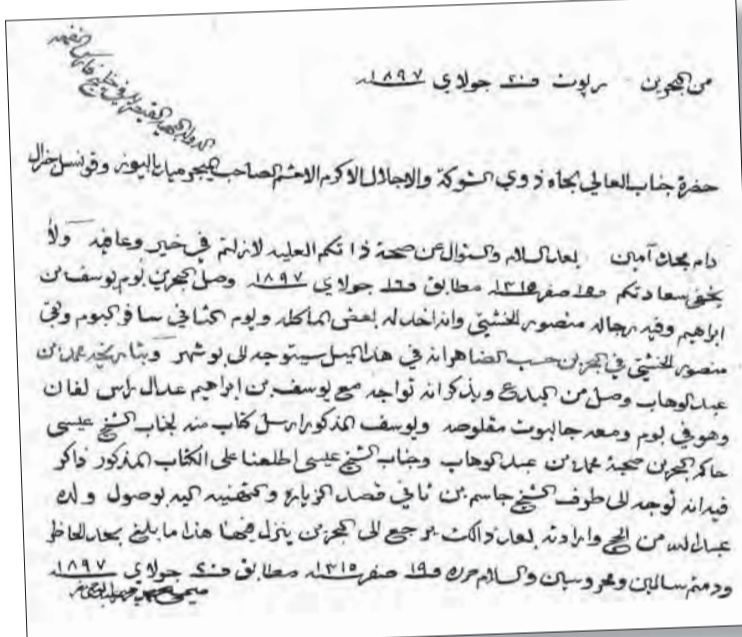 من البحرين ريپوت في ٢٠ جولاي ١٨٩٧
حضرة جناب العالي الجاه ذوي الشوكة والاجلال الاكرم الافخم الصاحب الميجر ميد باليوز وقونسل جنرال
دام مجده آمين بعد السلام والسؤال عن صحة ذاتكم العليه لازلتم في خير وعافيه ولا
يخفى سعادتكم ١٥ صفر ١٣١٥ مطابق ١٦ جولاي ١٨٩٧ وصل البحرين بوم يوسف بن
ابراهيم وفيه رجاله منصور الخشتي وانه اخذ له بعض المأكله ويوم الثاني سافر البوم وبقي
منصور الخشتي في البحرين حسب الظاهر انه في هذا الميل سيتوجه الى بوشهر وبتاريخه محمد بن
عبد الوهاب وصل من البدع ويذكر انه تواجه مع يوسف بن ابراهيم عدال راس لفان
وهو في بوم ومعه جالبوت مقلوصه ويوسف المذكور ارسل كتاب منه لجناب الشيخ عيسى
حاكم البحرين صحبة محمد بن عبد الوهاب وجناب الشيخ عيسى اطلعنا على الكتاب المذكور ذاكر
فيه انه توجه الى طرف الشيخ جاسم بن ثاني قصد الزياره والتهنيه اليه بوصول ولده
عبد الله من الحج وارادته بعد ذالك يرجع الى البحرين ينزل فيها هذا ما بلغ بحد الخاطر
ودمتم سالمين ومحروسين والسلام حرره ١٩ صفر ١٣١٥ مطابق ٢٠ جولاي ١٨٩٧